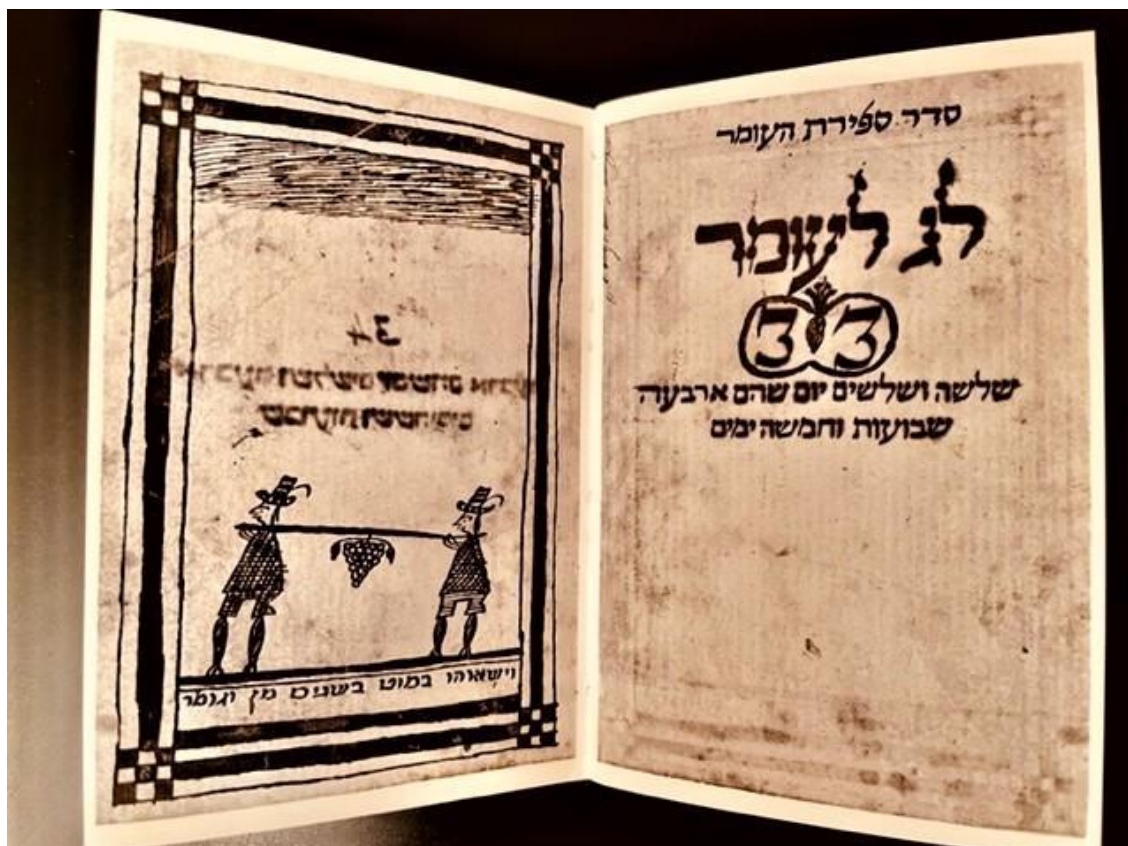 סדר ספירת העומר
לג לעומר
33
שלשה ושלשים יום שהם ארבעה
שבועות וחמשה ימים
34
וישאוהו במוט בשנים מן וגומר